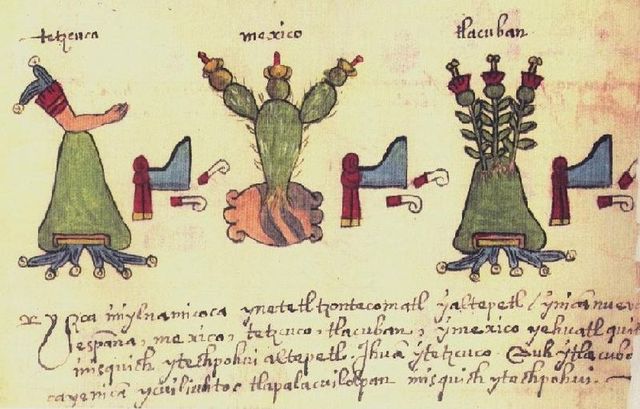 tetzcuco
mexico
tlacuban
ysca ynetetl tzontecomatl yaltepetl / ynican nueva
españa, mexico, tetzcuco, tlacuban, ymexico yehuatl
misquich ytechpohui altepetl. Yhuā ytetzcuco. Auh ytlacuba
cayenican ycuiliuhtoc tlapalacuilolpan misquich ytechpohui.